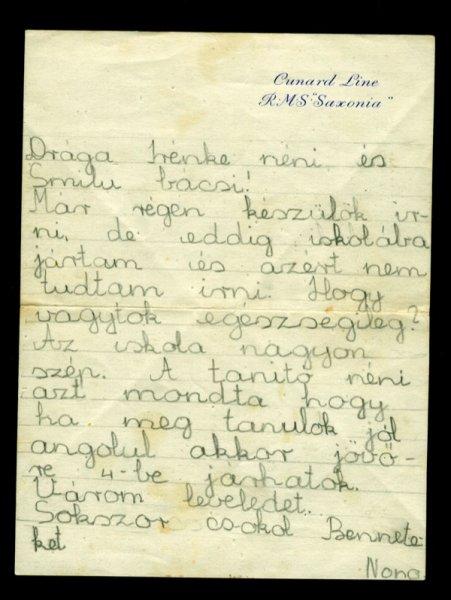 Cunard Line
RMS "Saxonia"
Drága Irénke néni és
Smilu bácsi!
Már régen készülök ir-
ni, de eddig iskolába
jártam és azért nem
tudtam irni. Hogy
vagytok egészségileg?
Az iskola nagyon
szép. A tanitó néni
azt mondta hogy
ha meg tanulok jól
angolul akkor jövő-
re 4-be járhatok.
Várom leveledet.
Sokszor csókol Bennete-
ket
Nona